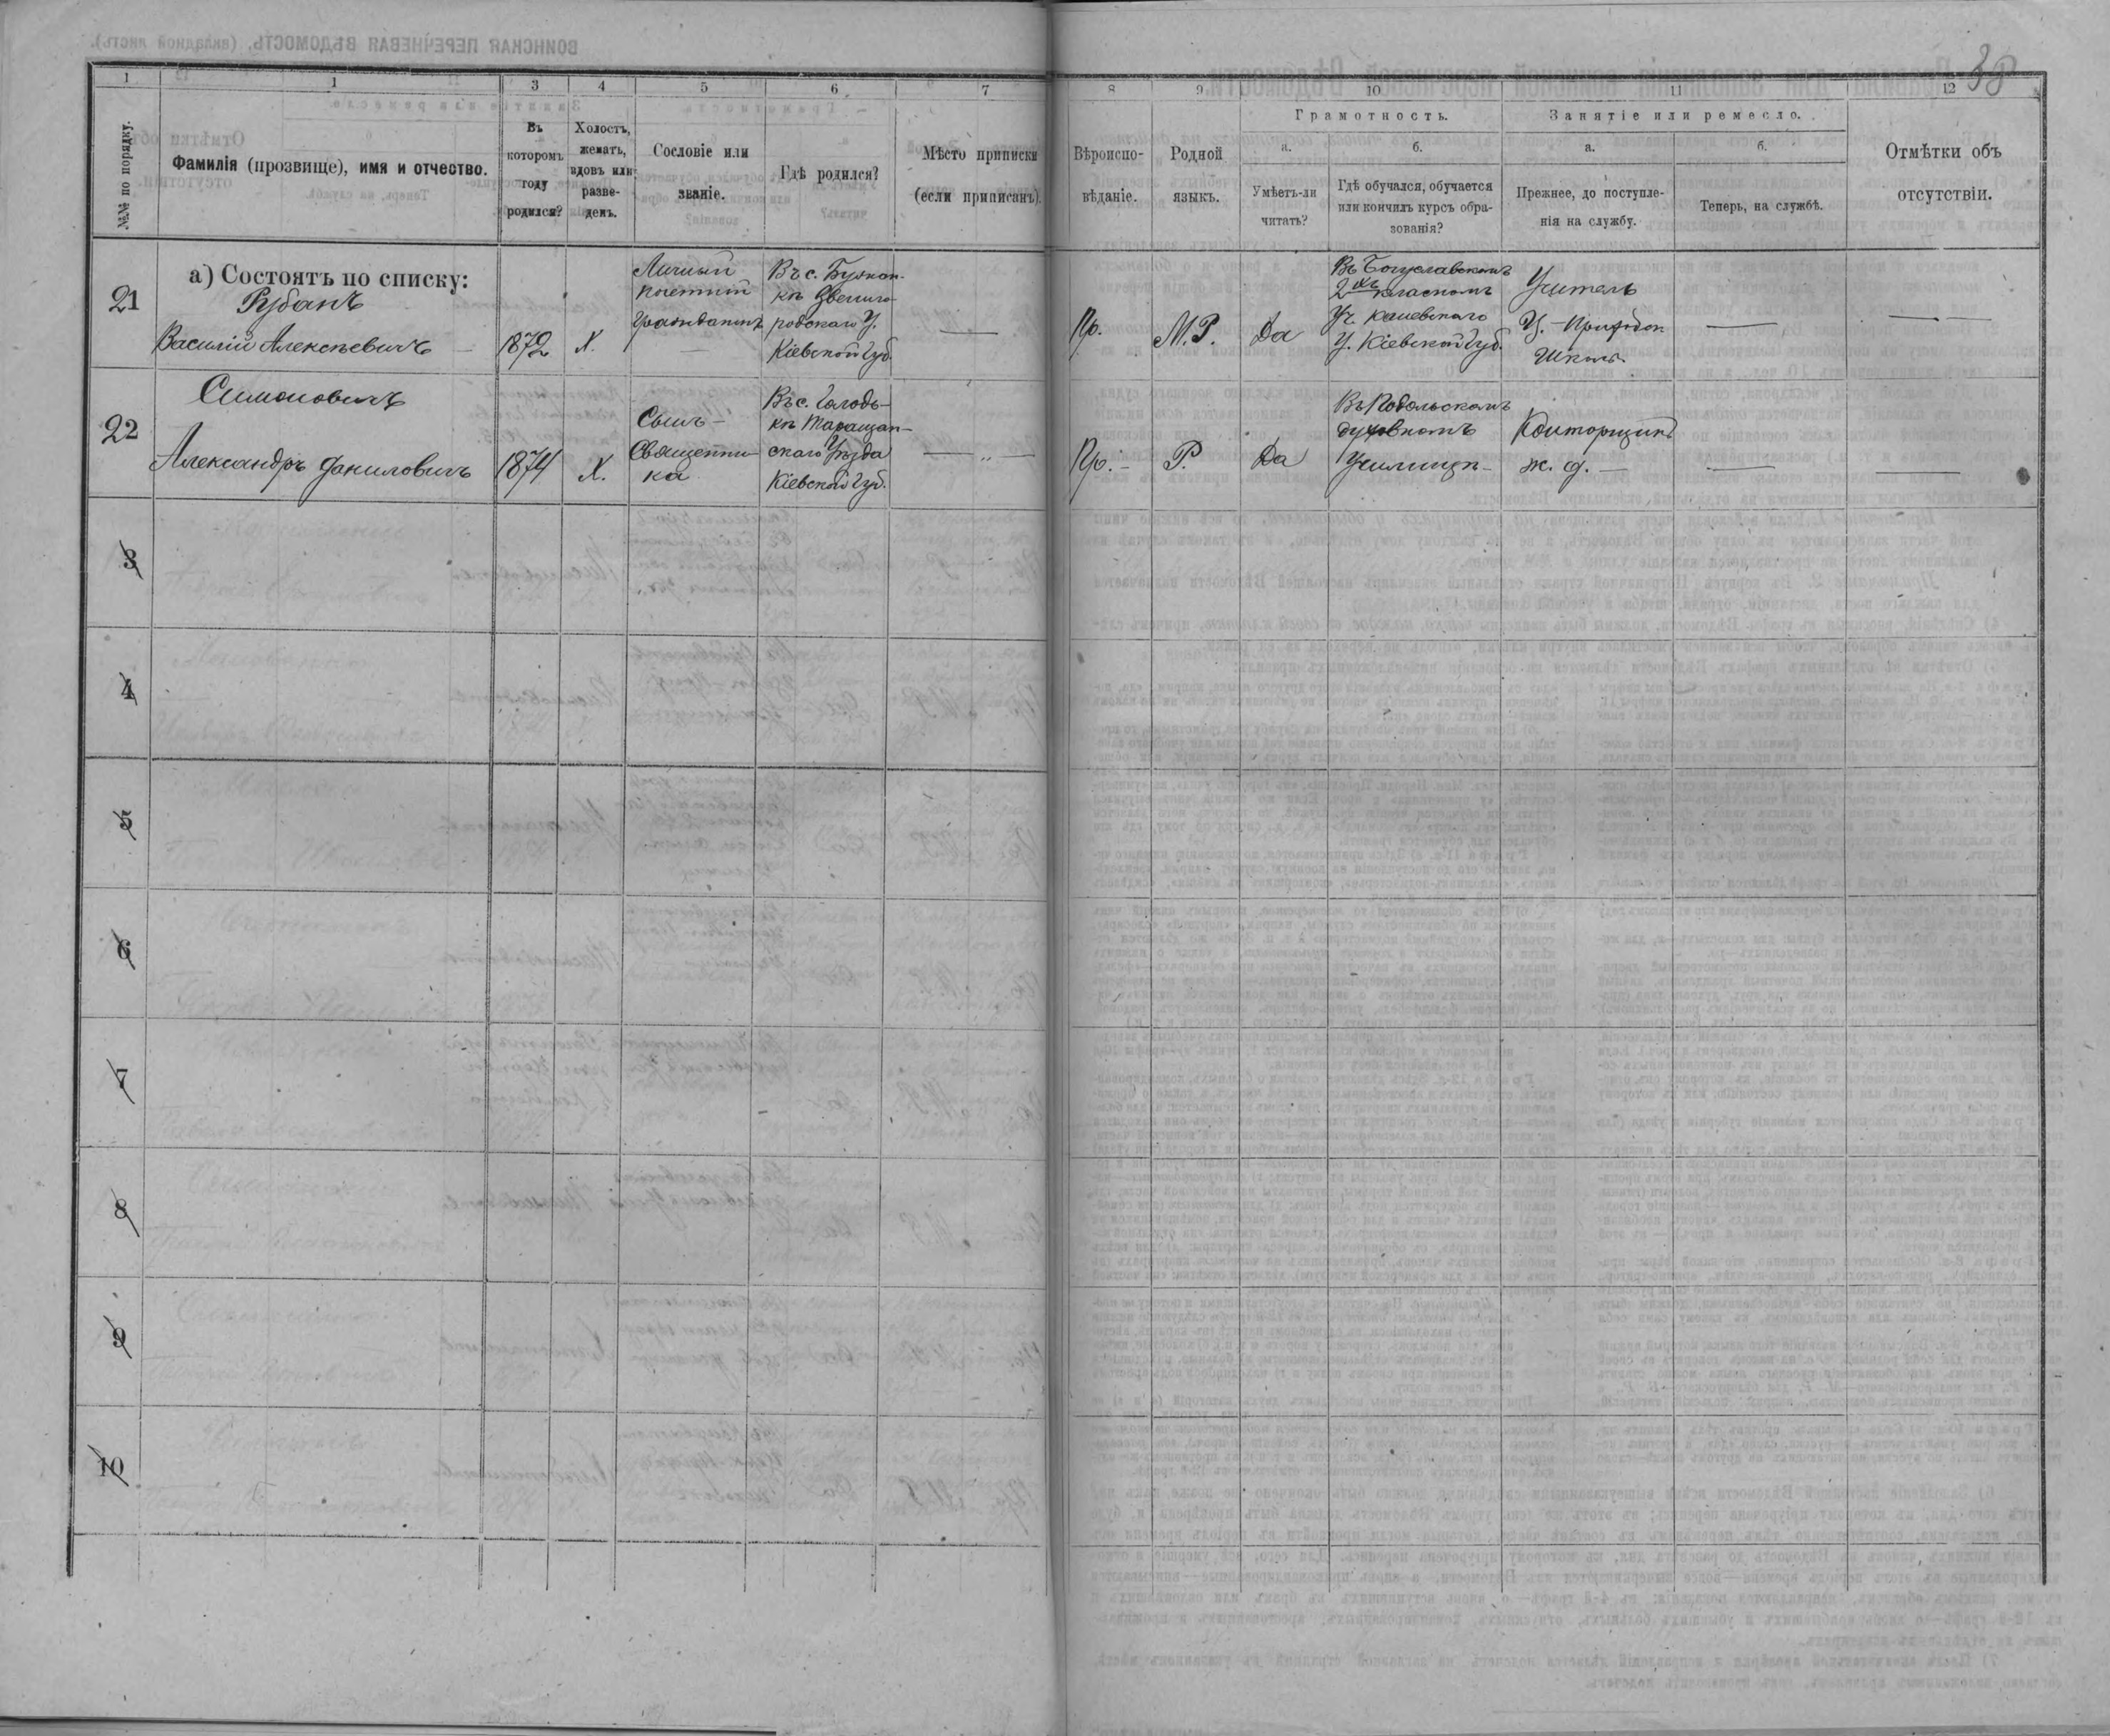 39
1 1 3 4 5 6 7 8 9 10 11 12
№№ по порядку.
Фамилія (прозвище), имя и отчество.
Въ
которомъ
году
родился?
Холостъ,
женатъ,
вдовъ или
разве-
денъ.
Сословіе или
званіе.
Гдѣ родился?
Мѣсто приписки
(если приписанъ).
Вѣроиспо-
вѣданіе.
Родной
языкъ.
Грамотность.
а.
Умѣетъ-ли
читать?
б.
Гдѣ обучался, обучается
или кончилъ курсъ обра-
зованія?
Занятіе или ремесло.
а.
Прежнее, до поступле-
нія на службу.
б.
Теперь, на службѣ.
Отмѣтки объ
отсутствіи.
а) Состоятъ по списку:
21
Рубанъ
Василій Алексѣевичъ
1872
Х.
Личный
почетный
гражданинъ
Въ с.
Звениго-
родскаго У.
Кіевской Губ.
—
Пр.
М.Р.
Да
Въ Богуславскомъ
2хъ класномъ
Уч. Каневскаго
У. Кіевской Губ.
Учитель
Ц.-Приходск.
Школы.
—
—
22
Симоновичъ
Александръ Даниловичъ
1874
Х.
Сынъ
Священни-
ка
Въ с.
Таращан-
скаго Уѣзда
Кіевской Губ.
— „ —
Пр.-
Р.
Да
Въ Подольскомъ
духовномъ
Училищѣ-
Конторщикъ
ж. д. —
—
—
3
4
5
6
7
8
9
10